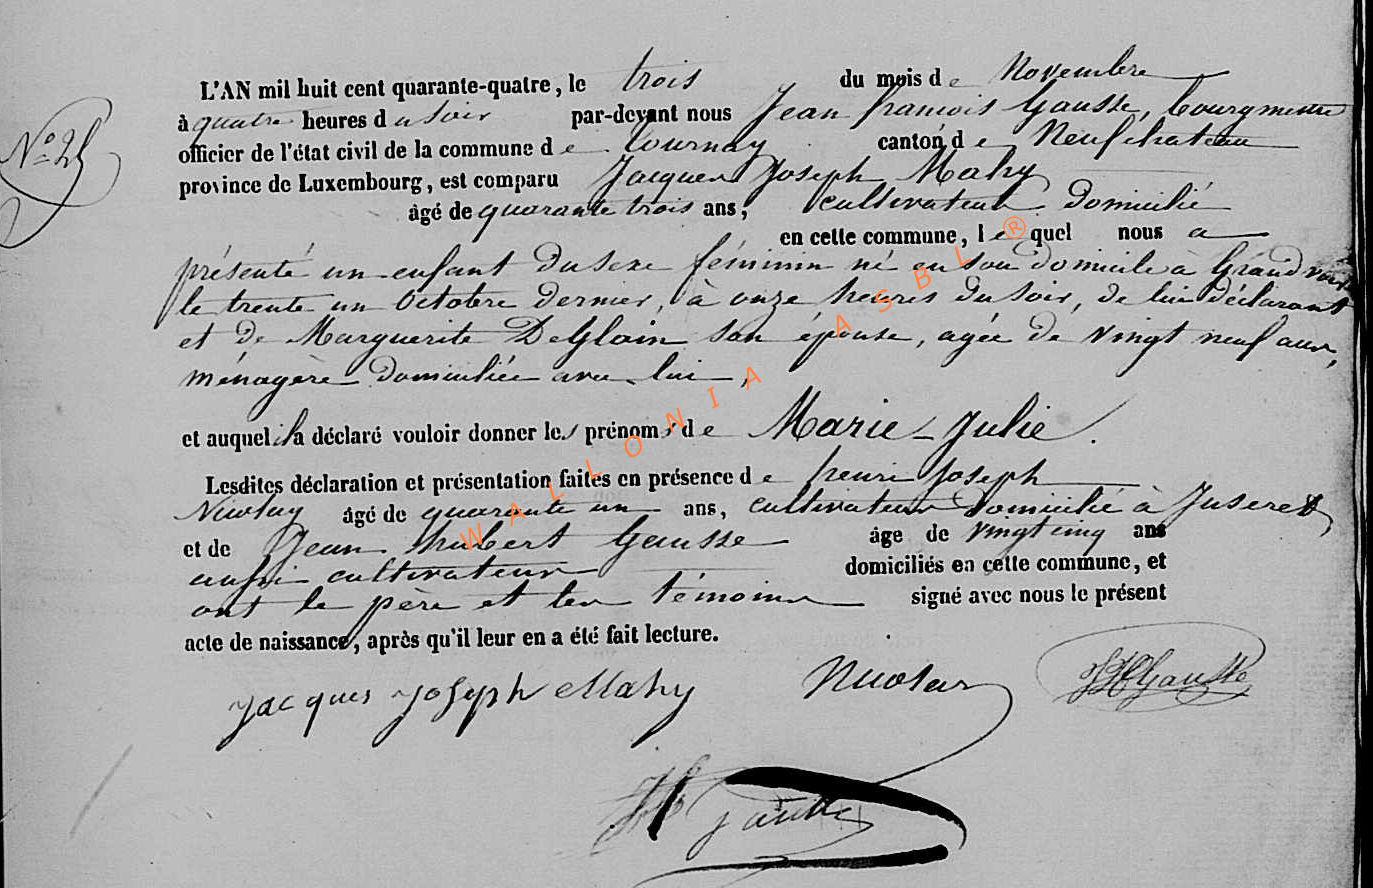 L'AN mil huit cent quarante-quatre, le trois du mois de Novembre
à quatre heures du soir par-devant nous Jean françois Gausse, bourgmestre
N° 25
officier de l'état civil de la commune de tournay canton de Neufchateau
province de Luxembourg, est comparu Jacques Joseph Mahy
âgé de quarante trois ans, cultivateur domicilié
en cette commune, lequel nous a
présenté un enfant du sexe féminin né en son domicile à Grandvoir
le trente un Octobre dernier, à onze heures du soir, de lui déclarant
et de Marguerite DeGlain son épouse, agée de vingt neuf ans,
ménagère domiciliée avec lui,
et auquel il a déclaré vouloir donner les prénoms de Marie-Julie.
Lesdites déclaration et présentation faites en présence de henri Joseph
Nicolay âgé de quarante un ans, cultivateur domicilié à Juseret
et de Jean hubert Gausse âge de vingt cinq ans
aussi cultivateur domiciliés en cette commune, et
ont le père et les témoins signé avec nous le présent
acte de naissance, après qu'il leur en a été fait lecture.
Jacques Joseph Mahy Nicolay JHGausse
Gausse
WALLONIA ASBL ®